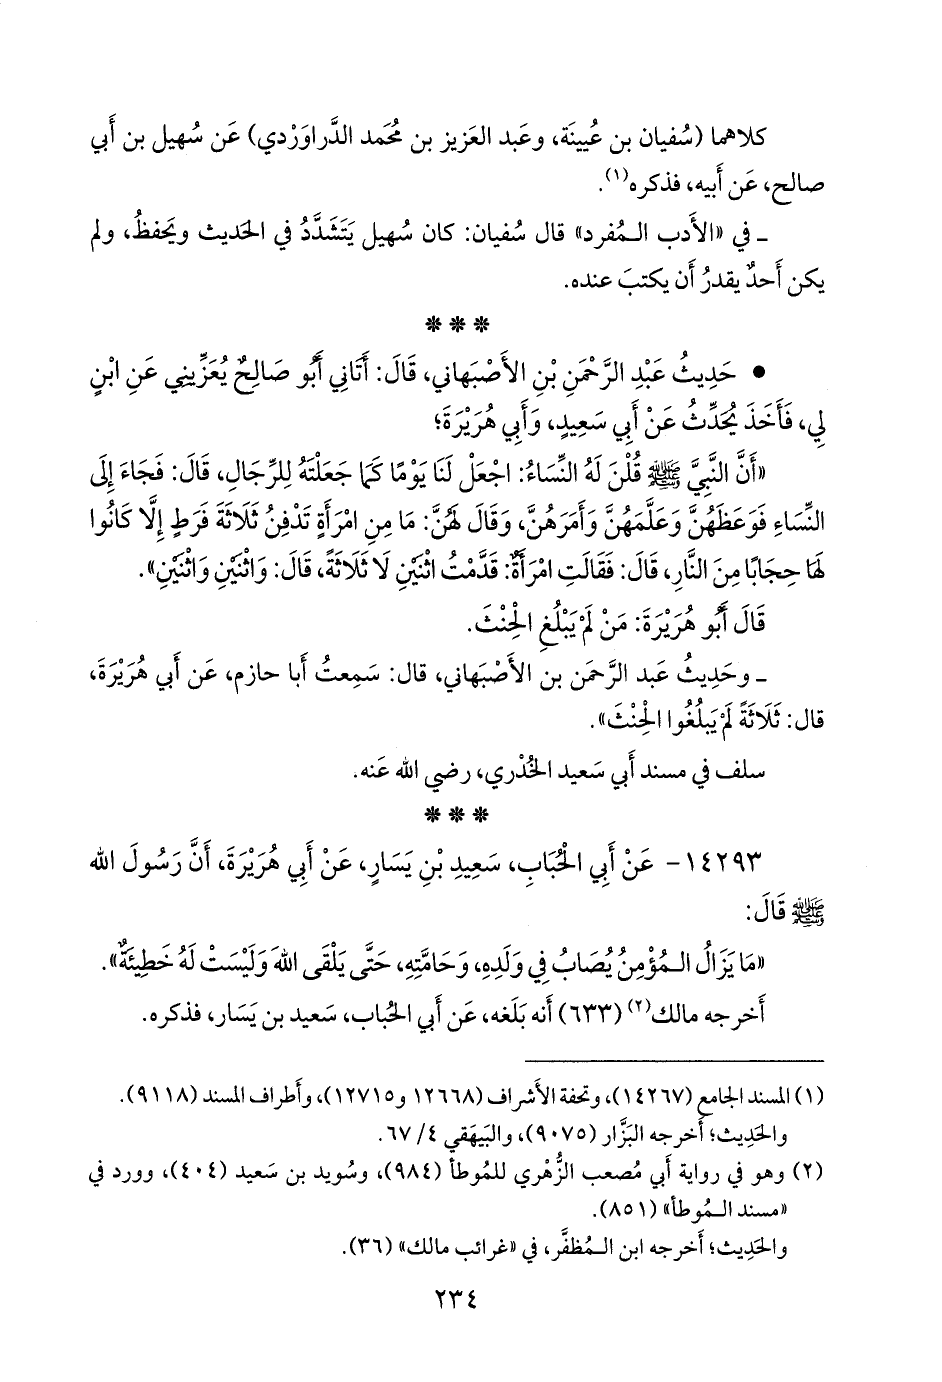 كلاهما (سُفيان بن عُيينَة، وعَبد العَزيز بن مُحَمد الدَّراوَرْدي) عَن سُهيل بن أَبي
صالح، عَن أَبيه، فذكره(١).
ـ في «الأَدب الـمُفرد» قال سُفيان: كان سُهيل يَتَشَدَّدُ في الحَديث ويَحفظُ، ولم
يكن أَحدٌ يقدرُ أَن يكتبَ عنده.
***
• حَدِيثُ عَبْدِ الرَّحْمَنِ بْنِ الأَصْبَهاني، قَالَ: أَتَانِي أَبُو صَالِحٌ يُعَزِّينِي عَنِ ابْنٍ
لِي، فَأَخَذَ يُحَدِّثُ عَنْ أَبِي سَعِيدٍ، وَأَبِي هُرَيْرَةَ؛
«أَنَّ النَّبِيَّ ﷺ قُلْنَ لَهُ النِّسَاءُ: اجْعَلْ لَنَا يَوْمًا كَمَا جَعَلْتَهُ لِلرِّجَالِ، قَالَ: فَجَاءَ إِلَى
النِّسَاءِ فَوَعَظَهُنَّ وَعَلَّمَهُنَّ وَأَمَرَهُنَّ، وَقَالَ لَهُنَّ: مَا مِنِ امْرَأَةٍ تَدْفِنُ ثَلَاثَةَ فَرَطٍ إِلَّا كَانُوا
لَهَا حِجَابًا مِنَ النَّارِ، قَالَ: فَقَالَتِ امْرَأَةٌ: قَدَّمْتُ اثْنَيْنِ لَا ثَلَاثَةً، قَالَ: وَاثْنَيْنِ وَاثْنَيْنِ».
قَالَ أَبُو هُرَيْرَةَ: مَنْ لَمْ يَبْلُغِ الْحِنْثَ.
ـ وحَدِيثُ عَبد الرَّحمَن بن الأَصْبَهاني، قال: سَمِعتُ أَبا حازم، عَن أَبي هُرَيْرَةَ،
قال: ثَلَاثَةً لَمْ يَبلُغُوا الْحِنْثَ».
سلف في مسند أَبي سَعيد الخُدْري، رضي الله عَنه.
***
١٤٢٩٣- عَنْ أَبِي الْحُبَابِ، سَعِيدِ بْنِ يَسَارٍ، عَنْ أَبِي هُرَيْرَةَ، أَنَّ رَسُولَ الله
ﷺ قَالَ:
«مَا يَزَالُ الـمُؤْمِنُ يُصَابُ فِي وَلَدِهِ، وَحَامَّتِهِ، حَتَّى يَلْقَى اللهَ وَلَيْسَتْ لَهُ خَطِيئَةٌ».
أَخرجه مالك(٢) (٦٣٣) أَنه بَلَغه، عَن أَبي الحُباب، سَعيد بن يَسَار، فذكره.
(١) المسند الجامع (١٤٢٦٧)، وتحفة الأَشراف (١٢٦٦٨ و١٢٧١٥)، وأَطراف المسند (٩١١٨).
والحَدِيث؛ أَخرجه البَزَّار (٩٠٧٥)، والبَيهَقي ٤/ ٦٧.
(٢) وهو في رواية أَبي مُصعب الزُّهْري للمُوطأ (٩٨٤)، وسُويد بن سَعيد (٤٠٤)، وورد في
«مسند الـمُوطأ» (٨٥١).
والحَدِيث؛ أَخرجه ابن الـمُظفَّر، في «غرائب مالك» (٣٦).
٢٣٤